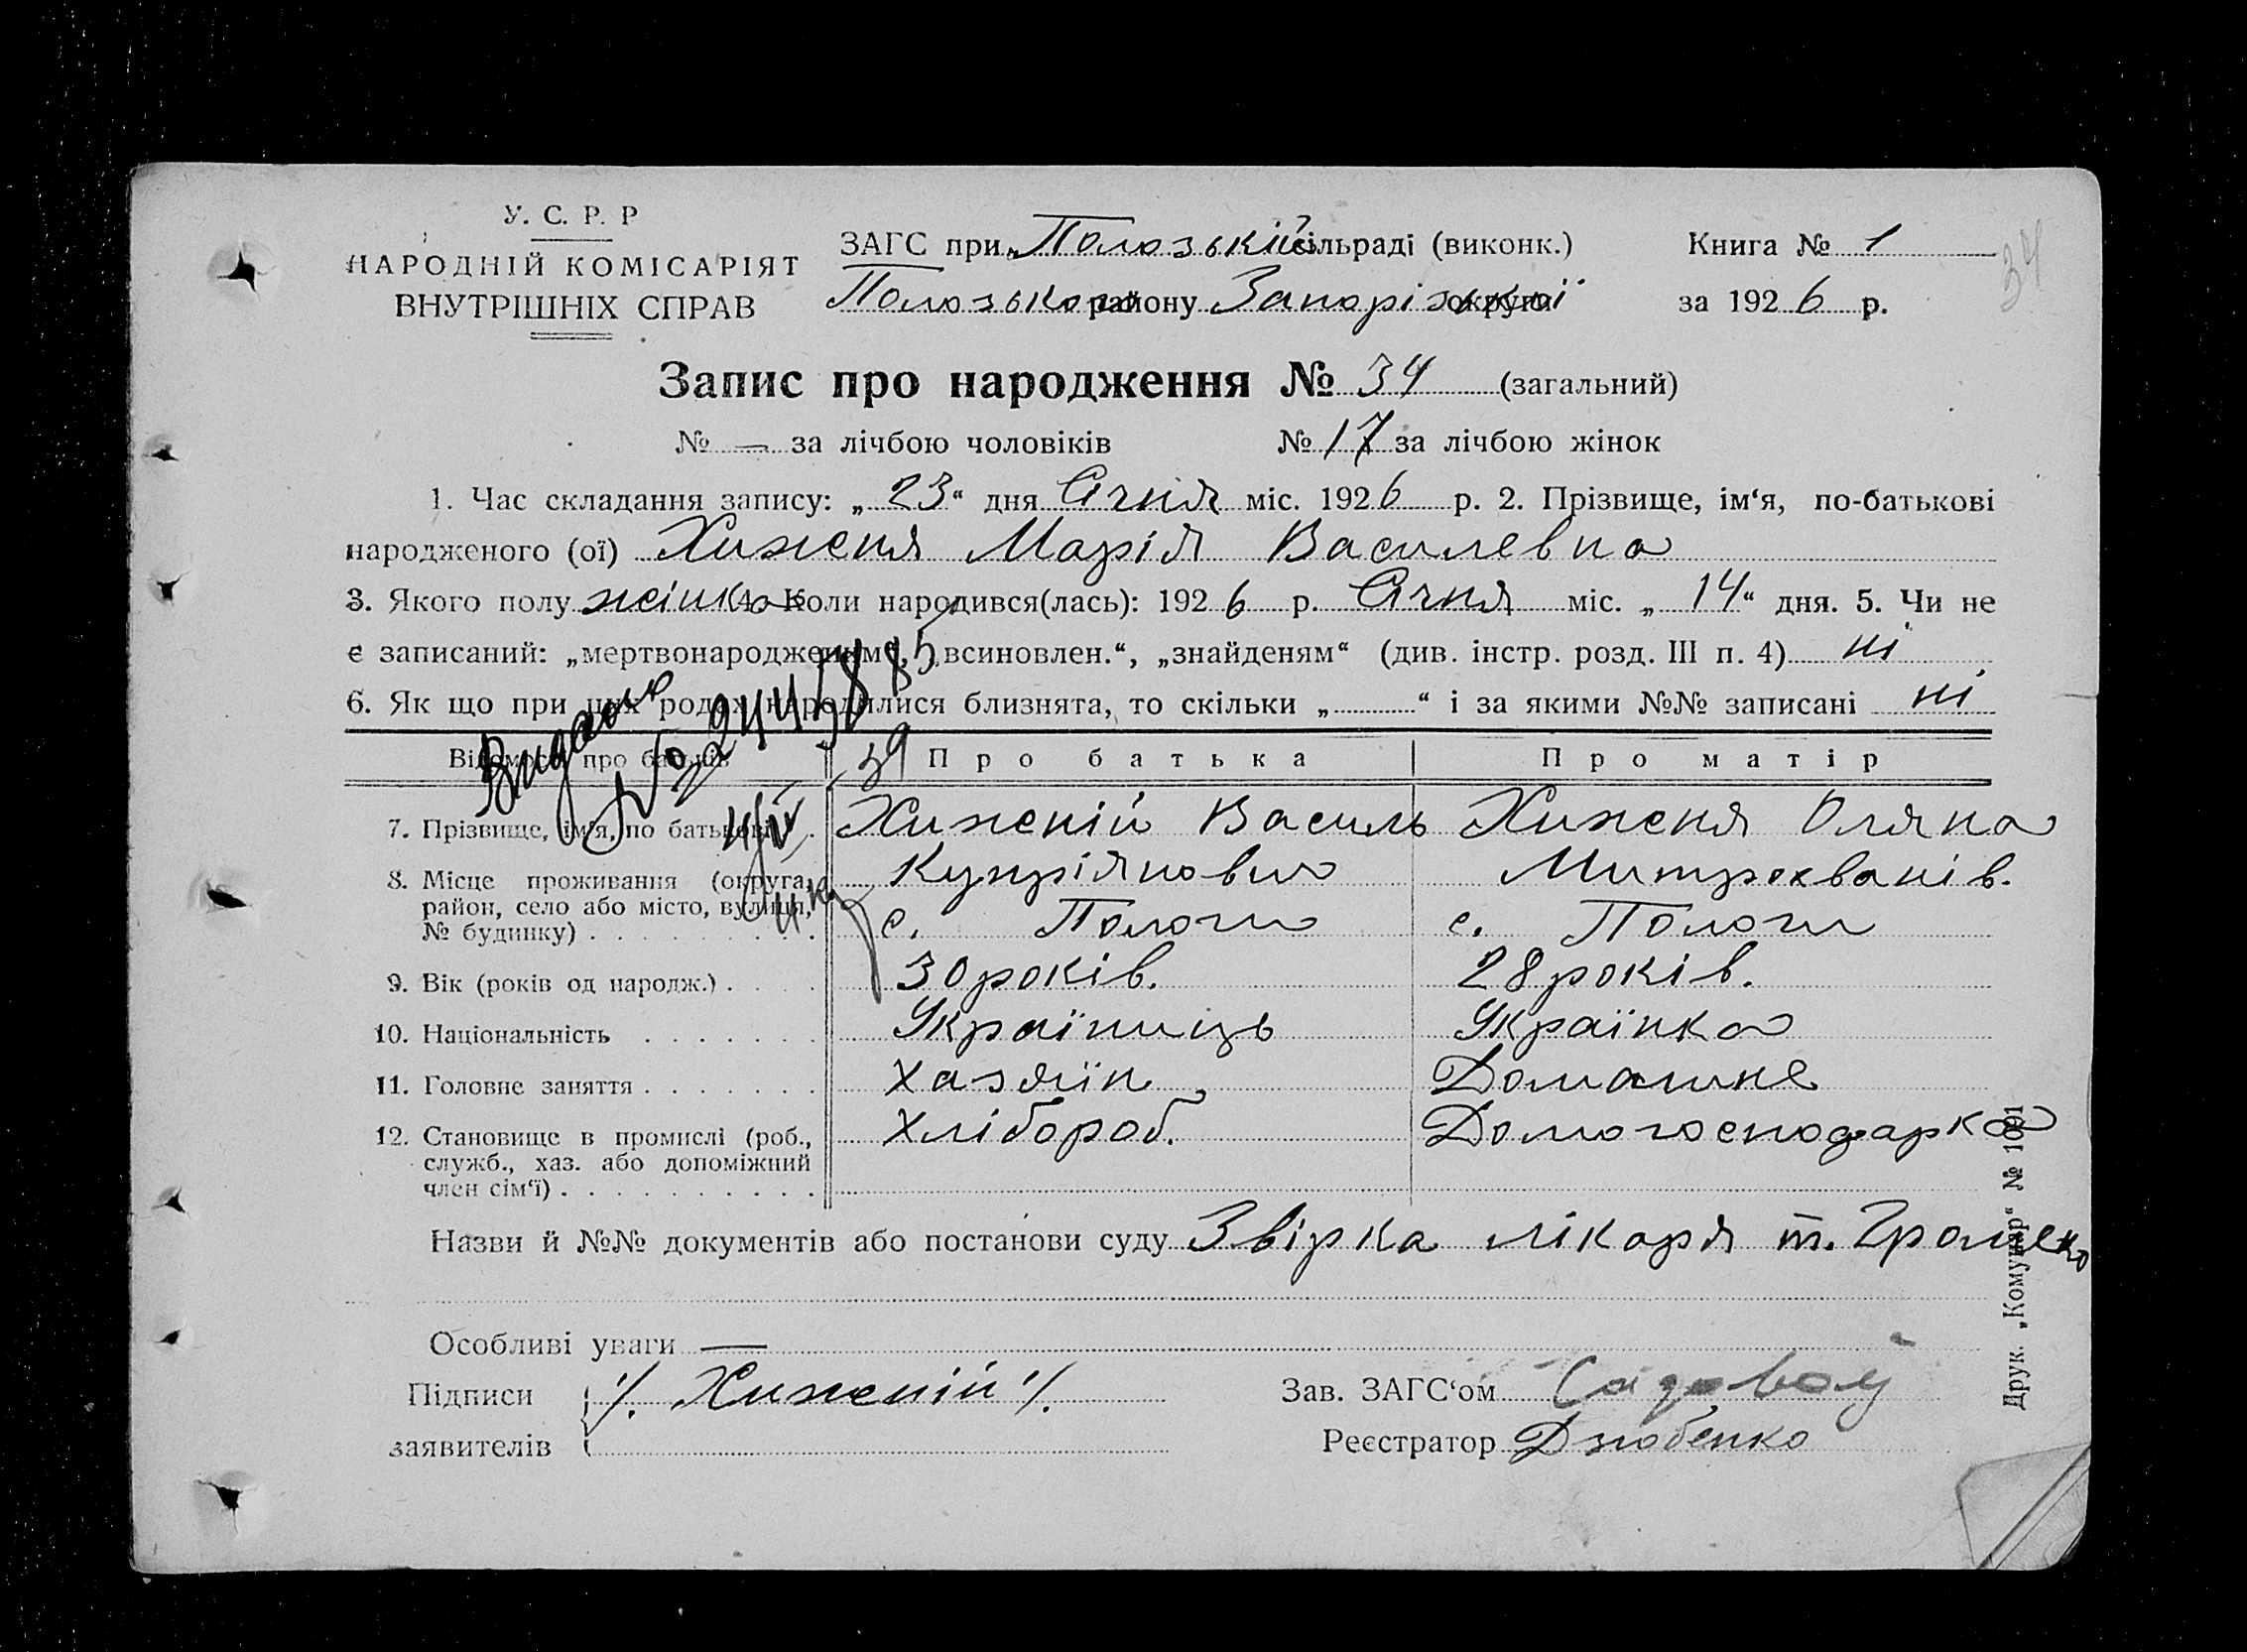 У. С. Р. Р
НАРОДНІЙ КОМІСАРІЯТ
ВНУТРІШНІХ СПРАВ
ЗАГС при Полозькій сільраді (виконк.)
Полозького району Запорізької округи
Книга № 1
за 1926 р.
34
Запис про народження № 34 (загальний)
№ — за лічбою чоловіків № 17 за лічбою жінок
1. Час складання запису: „23“ дня Січня міс. 1926 р. 2. Прізвище, ім‘я, по-батькові
народженого (ої) Хиженя Марія Василевна
3. Якого полу жінка 4. Коли народився(лась): 1926 р. Січня міс. „14“ дня. 5. Чи не
є записаний: „мертвонародженим“, „всиновлен.“, „знайденям“ (див. інстр. розд. III п. 4) ні
6. Як що при цих родах народилися близнята, то скільки „ “ і за якими №№ записані ні
Відомості про батьків Про батька Про матір
7. Прізвище, ім‘я, по батькові Хиженій Василь Хиженя Оляна
Купріянович Митрохванів.
8. Місце проживання (округа,
район, село або місто, вулиця,
№ будинку) с. Пологи с. Пологи
9. Вік (років од народж.) 30 років. 28 років.
10. Національність Україниць Українка
11. Головне заняття Хазяїн Домашне
12. Становище в промислі (роб., Хлібороб. Домогосподарка
служб., хаз. або допоміжний
член сім‘ї)
Назви й №№ документів або постанови суду Звірка лікаря т. Громеко
Особливі уваги —
Підписи /. Хиженій /.
заявителів
Зав. ЗАГС‘ом
Реєстратор Дзюбенко
Друк. „Комунар“ № 1091